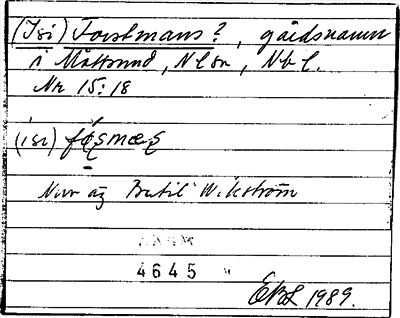 (Isi) Forstmans?, gårdsnamn
i Måttsund, Nlsn, Nbl.
Nr 15:18
(isi)
Nuv äg Bertil Wikström
4645
EBL 1989.